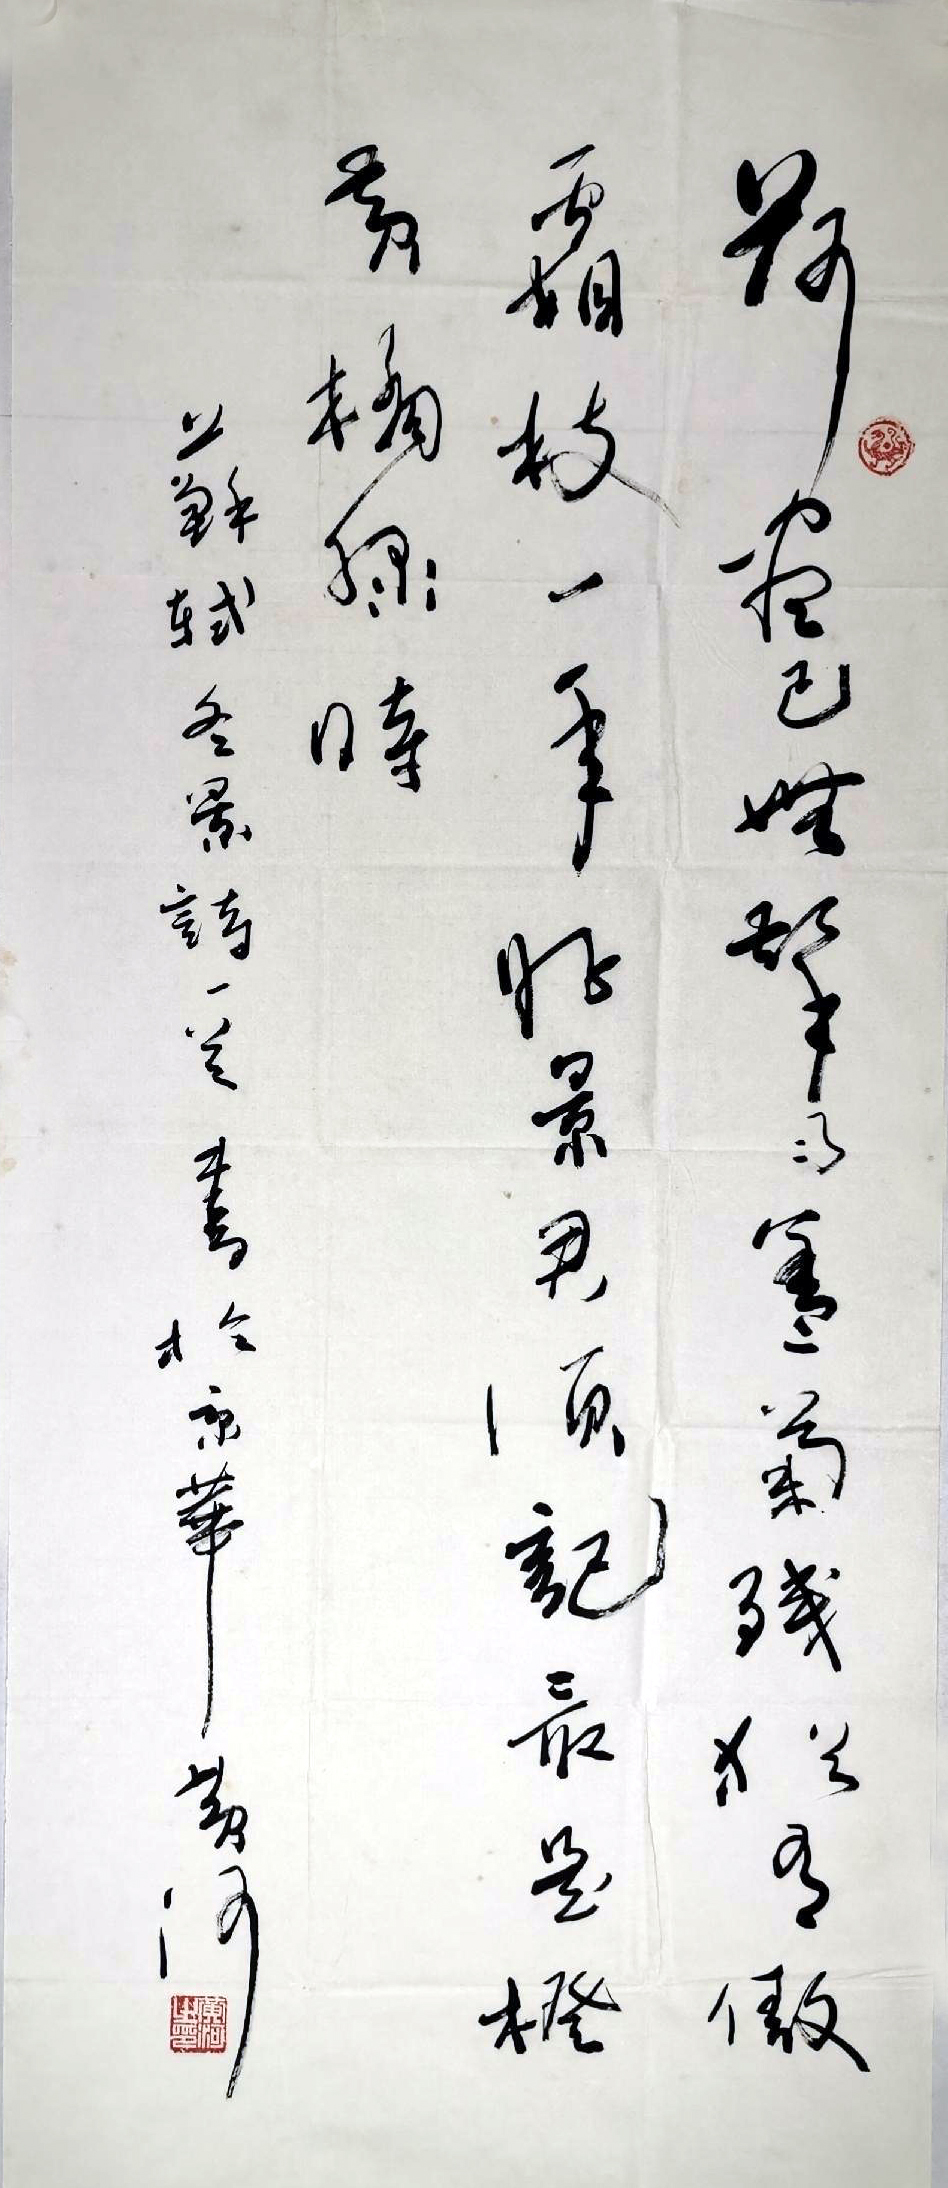 荷盡已無擎雨蓋菊殘猶有傲
霜枝一年好景君須記最是橙
黃橘綠時
蘇軾冬景詩一首書於京華黃河
黃河之印